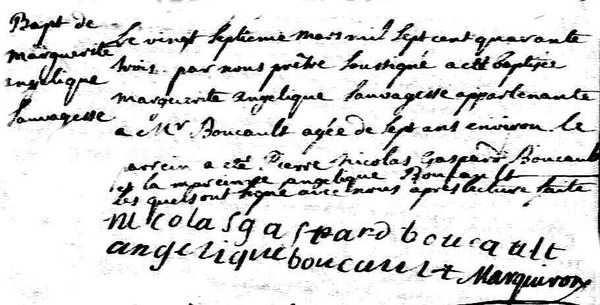 Bapt de
marguerite
angelique
Sauvagesse
Le vingt Septieme mars mil Sept cent quarante
trois par nous prêtre Soussigné a eté baptisée
marguerite angelique Sauvagesse appartenante
a Mr Boucault agée de Sept ans environ le
parrein a eté Pierre Nicolas Gaspard Boucault
et la mareine angelique Boucault
Les quels ont signé avec nous apres lecture faite
nicolasgaspardboucault
angeliqueboucault Marquiron